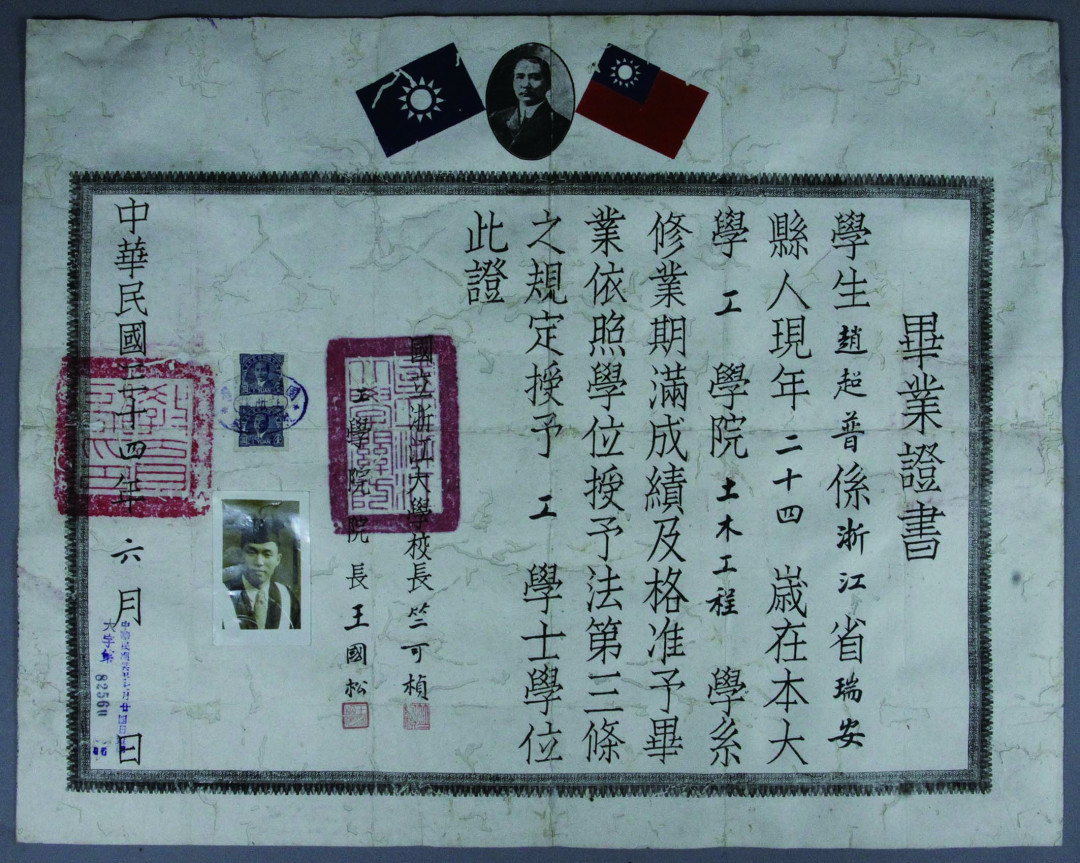 畢業證書
學生趙超普係浙江省瑞安
縣人現年二十四歲在本大
學工學院土木工程學系
修業期滿成績及格准予畢
業依照學位授予法第三條
之規定授予工學士學位
此證
國立浙江大學校長竺可楨
工學院院長王國松
中華民國三十四年六月日
大字第82560